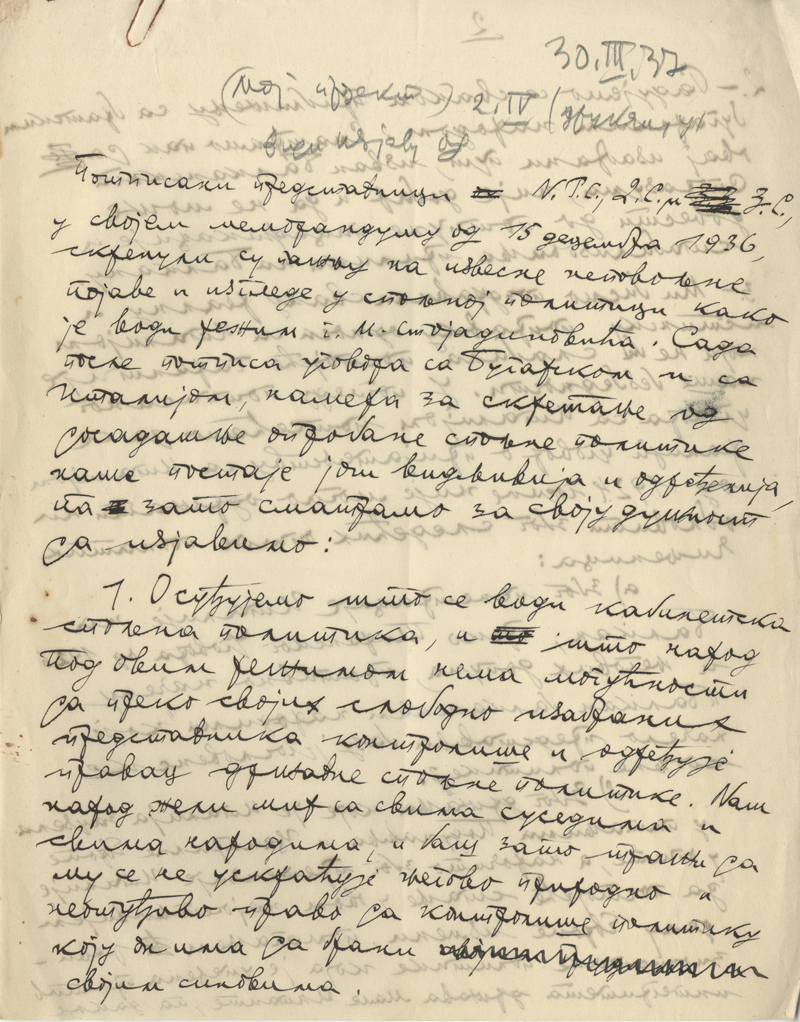 30.III.37
(Мој пројект) 2. IV
види изјаву од
Потписани представници Н.Р.С., Д.С. и З.С.,
у својем меморандуму од 15 децембра 1936,
скренули су пажњу на извесне неповољне
појаве и изгледе у спољној политици како
је води режим г. М. Стојадиновића. Сада
после потписа уговора са Бугарском и са
Италијом, намера за скретање од
досадашње опробане спољне политике
наше постаје још видљивија и одређенија,
па зато сматрамо за своју дужност
да изјавимо:
1. Осуђујемо што се води кабинетска
спољна политика, и што народ
под овим режимом нема могућности
да преко својих слободно изабраних
представника контролише и одређује
правац државне спољне политике. Наш
народ жели мир са свима суседима и
свима народима, и баш зато тражи да
му се не ускраћује његово природно и
неотуђиво право да контролише политику
коју он има да брани
својим синовима.